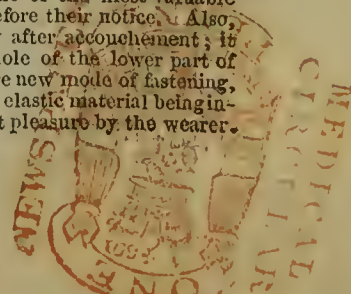 before their notice. Also,
after accouchement; it
ole of the lower part of
e new mode of fastening,
elastic material being in-
t pleasure by the wearer.
NEWS
MEDICAL